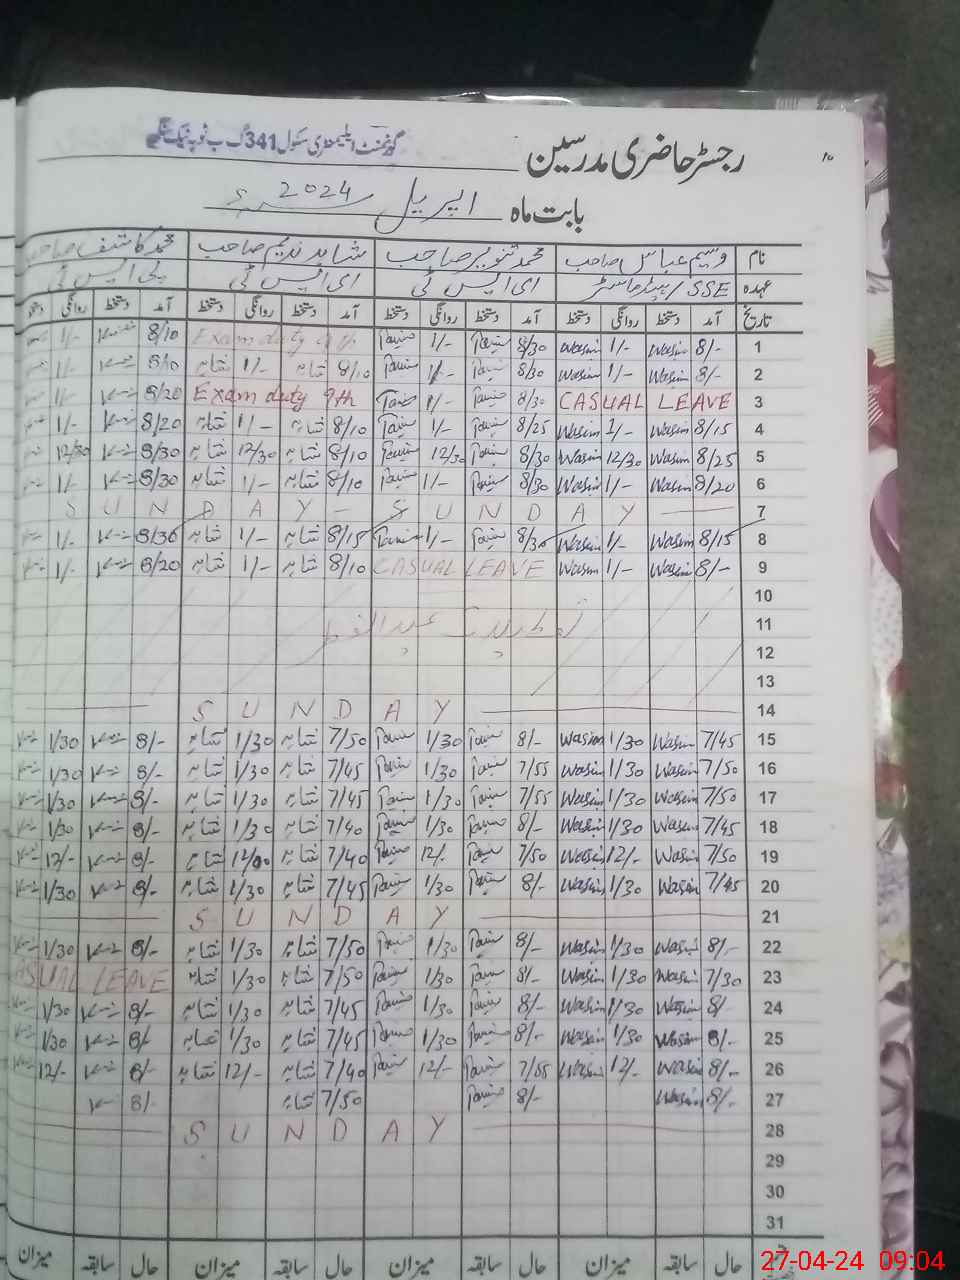 رجسٹر حاضری مدرسین گورنمنٹ ایلیمنٹری سکول 341 گ ب ٹوبہ ٹیک سنگھ
بابت ماہ اپریل 2024ء
نام وسیم عباس صاحب محمد تنویر صاحب شاہد ندیم صاحب محمد کاشف صاحب
عہدہ SSE/ہیڈ ماسٹر ای ایس ٹی ای ایس ٹی پی ایس ٹی
تاریخ آمد دستخط روانگی دستخط آمد دستخط روانگی دستخط آمد دستخط روانگی دستخط آمد دستخط روانگی دستخط
1 8/- Wasim 1/- Wasim 8/30 1/- Exam duty 9th 8/10 1/-
2 8/- Wasim 1/- Wasim 8/30 1/- 8/10 شاہد 1/- شاہد 8/10 1/-
3 CASUAL LEAVE 8/30 1/- Exam duty 9th 8/20 1/-
4 8/15 Wasim 1/- Wasim 8/25 1/- 8/10 شاہد 1/- شاہد 8/20 1/-
5 8/25 Wasim 12/30 Wasim 8/30 12/30 8/10 شاہد 12/30 شاہد 8/30 12/30
6 8/20 Wasim 1/- Wasim 8/30 1/- 8/10 شاہد 1/- شاہد 8/30 1/-
7 SUNDAY - SUNDAY
8 8/15 Wasim 1/- Wasim 8/30 1/- 8/15 شاہد 1/- شاہد 8/30 1/-
9 8/- Wasim 1/- Wasim CASUAL LEAVE 8/10 شاہد 1/- شاہد 8/20 1/-
10
11 تعطیلات عید الفطر
12
13
14 SUNDAY
15 7/45 Wasim 1/30 Wasim 8/- 1/30 7/50 شاہد 1/30 شاہد 8/- 1/30
16 7/50 Wasim 1/30 Wasim 7/55 1/30 7/45 شاہد 1/30 شاہد 8/- 1/30
17 7/50 Wasim 1/30 Wasim 7/55 1/30 7/45 شاہد 1/30 شاہد 8/- 1/30
18 7/45 Wasim 1/30 Wasim 8/- 1/30 7/40 شاہد 1/30 شاہد 8/- 1/30
19 7/50 Wasim 12/- Wasim 7/50 12/- 7/40 شاہد 12/00 شاہد 8/- 12/-
20 7/45 Wasim 1/30 Wasim 8/- 1/30 7/45 شاہد 1/30 شاہد 8/- 1/30
21 SUNDAY
22 8/- Wasim 1/30 Wasim 8/- 1/30 7/50 شاہد 1/30 شاہد 8/- 1/30
23 7/30 Wasim 1/30 Wasim 8/- 1/30 7/50 شاہد 1/30 شاہد ASUAL LEAVE
24 8/- Wasim 1/30 Wasim 8/- 1/30 7/45 شاہد 1/30 شاہد 8/- 1/30
25 8/- Wasim 1/30 Wasim 8/- 1/30 7/45 شاہد 1/30 شاہد 8/- 1/30
26 8/- Wasim 12/- Wasim 7/55 12/- 7/40 شاہد 12/- شاہد 8/- 12/-
27 8/- Wasim 8/- 7/50 شاہد 8/-
28 SUNDAY
29
30
31
حال سابقہ میزان حال سابقہ میزان حال سابقہ میزان حال سابقہ میزان
27-04-24 09:04